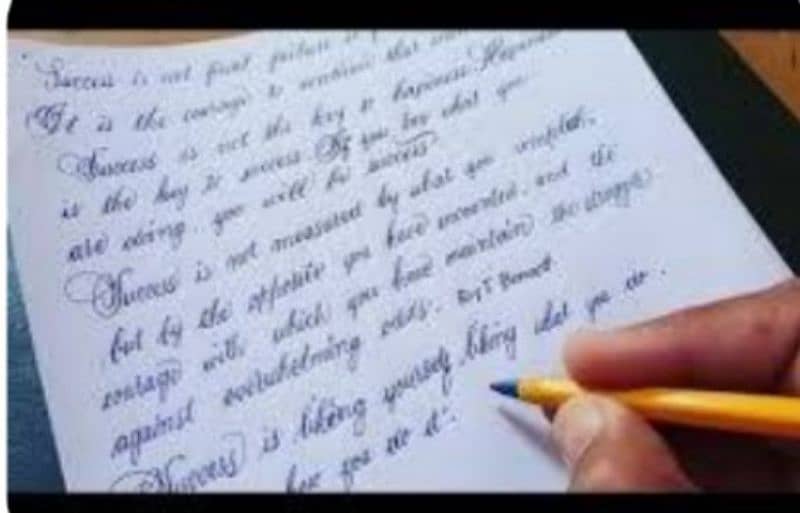 Success is not final failure is
It is the courage to continue that
Success is not the key to happiness. Happiness
is the key to success. If you love what you
are doing, you will be success
Success is not measured by what you
but by the opposite you have and the
courage with which you have maintain the struggle
against overwhelming odds.
Success is liking yourself, liking what you do.
how you do it.